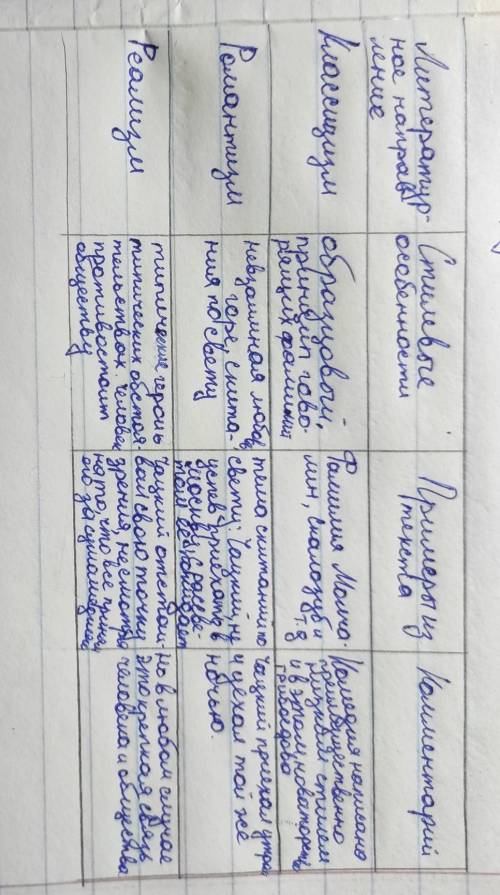 Литератур-
ное направ
ление
Стилевые
особенности
Примеры из
текста
Комментарий
Классицизм
образцовый,
принцип гово-
рящих фамилий
Фамилия Молча-
лин, скалозуб и
т.д
Комедия написана
преимущественно
низким стилем
и в этом новаторство
грибоедова
Романтизм
невзаимная любовь
горе, скита-
ния по свету
тема скитаний по
свету: Чацкий, не
успев приехать в
Москву, сразу
Чацкий приехал утром
и уехал той же
ночью.
Реализм
типические герои в
типических обстоя-
тельствах человек
противостоит
обществу
Чацкий отстаи-
вал свою точку
зрения, несмотря
на то, что все приня
его за сумасшедшего
но в любом случае
это крепкая связь
человека и общества